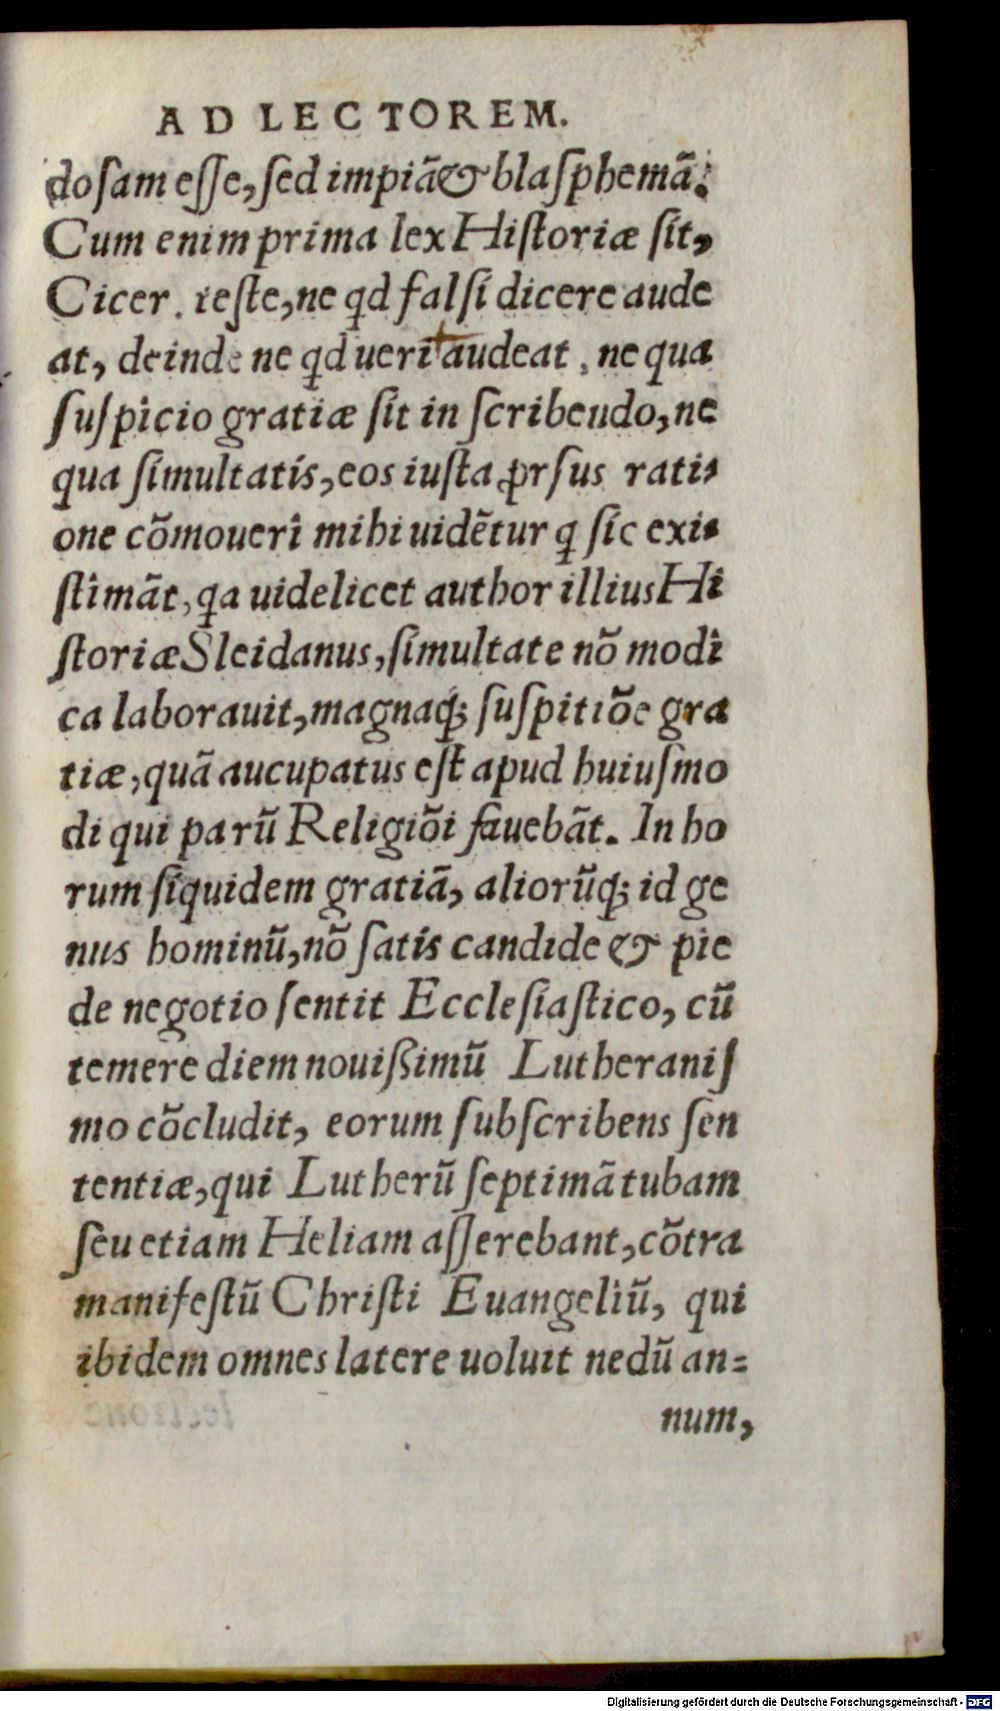 AD LECTOREM.
doſam eſſe, ſed impiā & blaſphemā.
Cum enim prima lex Hiſtoriæ ſit,
Cicer. teſte, ne qd falſi dicere aude
at, deinde ne qd ueri audeat, ne qua
ſuſpicio gratiæ ſit in ſcribendo, ne
qua ſimultatis, eos iuſta ꝓrſus rati-
one cōmoueri mihi uidētur q ſic exi-
ſtimāt, qa uidelicet author illius Hi
ſtoriæ Sleidanus, ſimultate nō modi
ca laborauit, magnaq; ſuſpitiōe gra
tiæ, quā aucupatus eſt apud huiuſmo
di qui parū Religiōi fauebāt. In ho
rum ſiquidem gratiā, aliorūq; id ge
nus hominū, nō ſatis candide & pie
de negotio ſentit Eccleſiaſtico, cū
temere diem nouißimū Lutheraniſ
mo cōcludit, eorum ſubſcribens ſen
tentiæ, qui Lutherū ſeptimā tubam
ſeu etiam Heliam aſſerebant, cōtra
manifeſtū Chriſti Euangeliū, qui
ibidem omnes latere uoluit nedū an=
num,
Digitalisierung gefördert durch die Deutsche Forschungsgemeinschaft - DFG